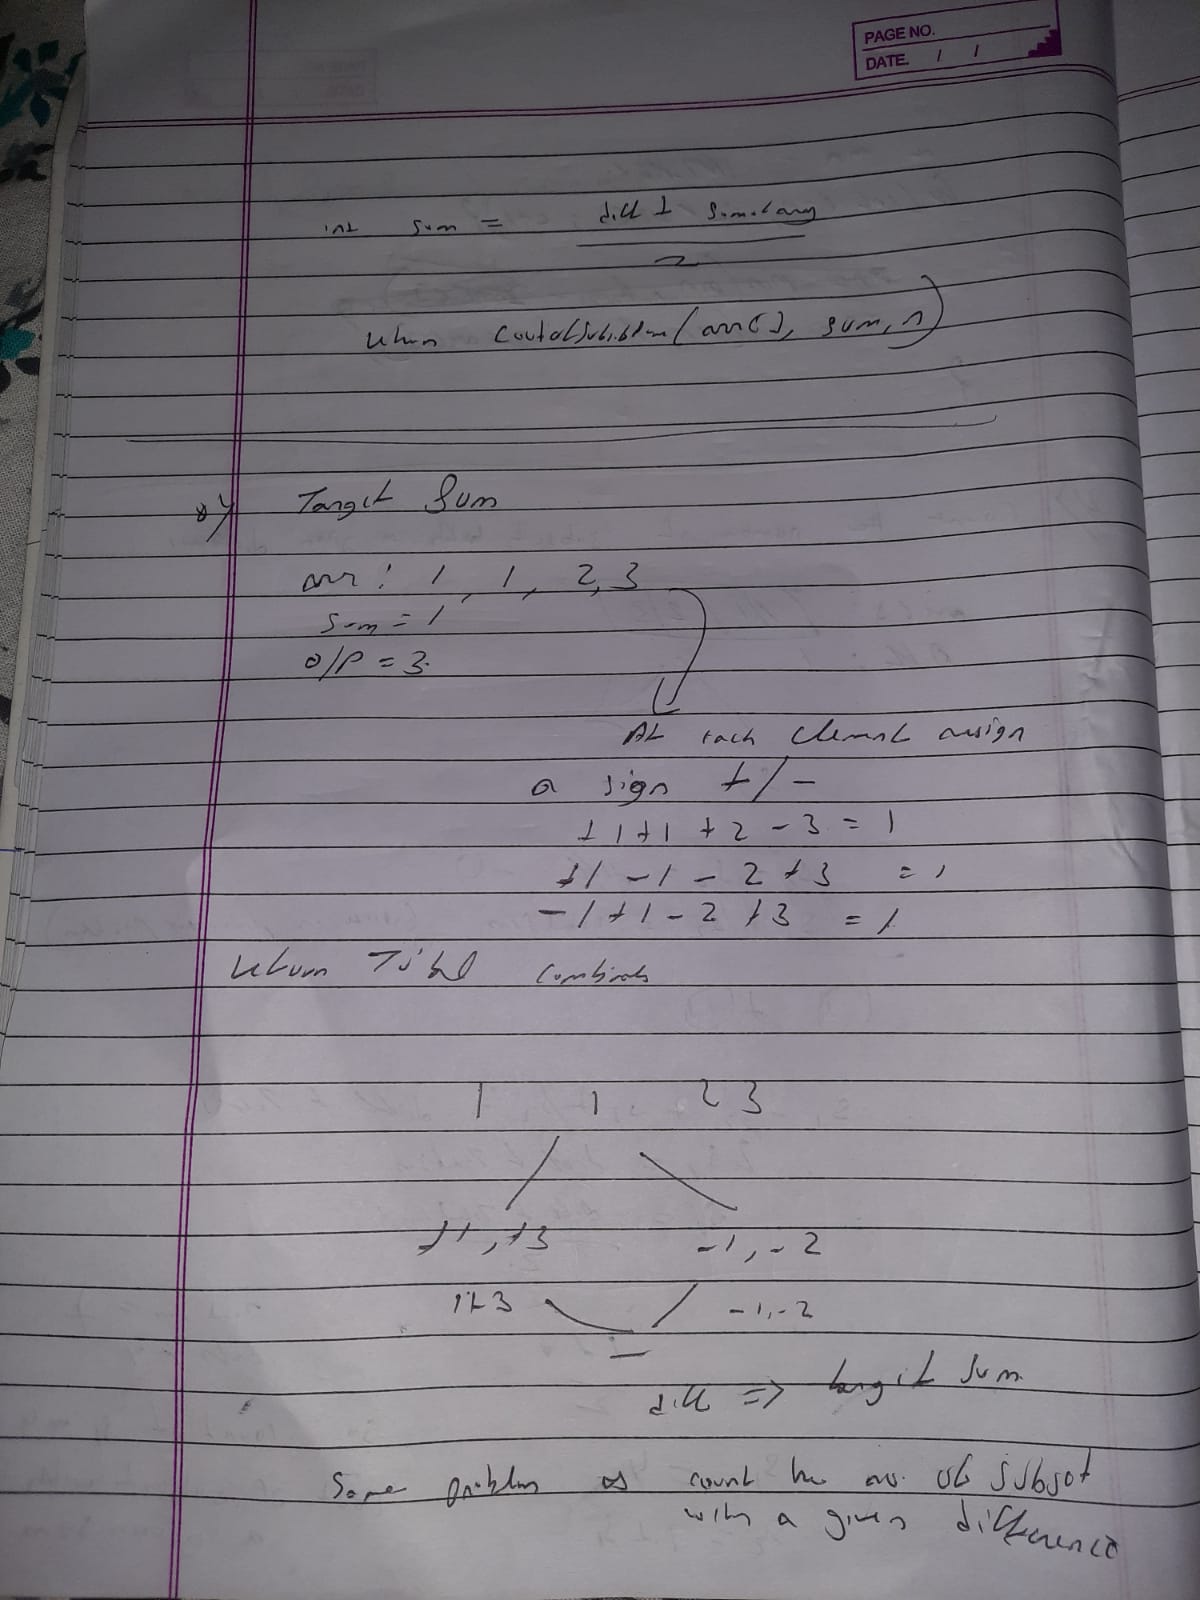 PAGE NO.
DATE. / /
int sum = diff + sum of array
2
return CountofSubsetSum (arr[], sum, n)
8) Target Sum
arr : 1, 1, 2, 3
sum = 1
O/P = 3.
At each element assign
a sign + / -
+1 +1 +2 - 3 = 1
+1 - 1 - 2 + 3 = 1
- 1 + 1 - 2 + 3 = 1
return Total
1 1 2 3
+1, +3 -1, -2
1+3 -1, -2
-
diff => target sum
Same problem as count the no. of subset
with a given difference